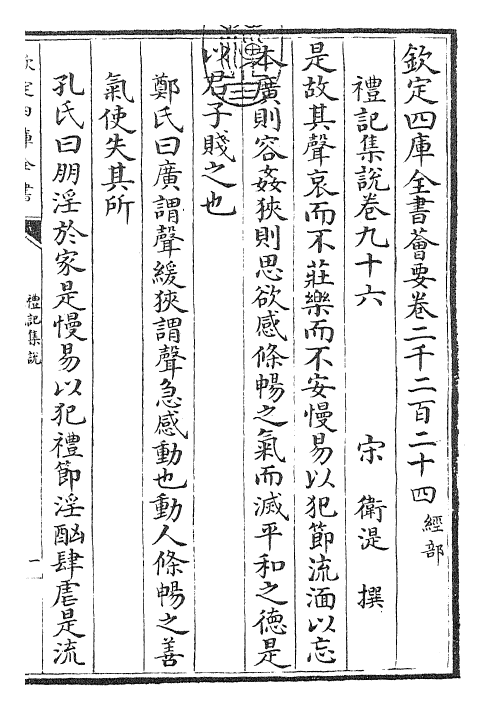 欽定四庫全書薈要卷二千二百二十四 經部
禮記集說卷九十六 宋 衛湜 撰
是故其聲哀而不莊樂而不安慢易以犯節流湎以忘
本廣則容姦狹則思欲感條暢之氣而滅平和之德是
以君子賤之也
鄭氏曰廣謂聲緩狹謂聲急感動也動人條暢之善
氣使失其所
孔氏曰朋淫於家是慢易以犯禮節淫酗肆虐是流
欽定四庫全書
禮記集說
一